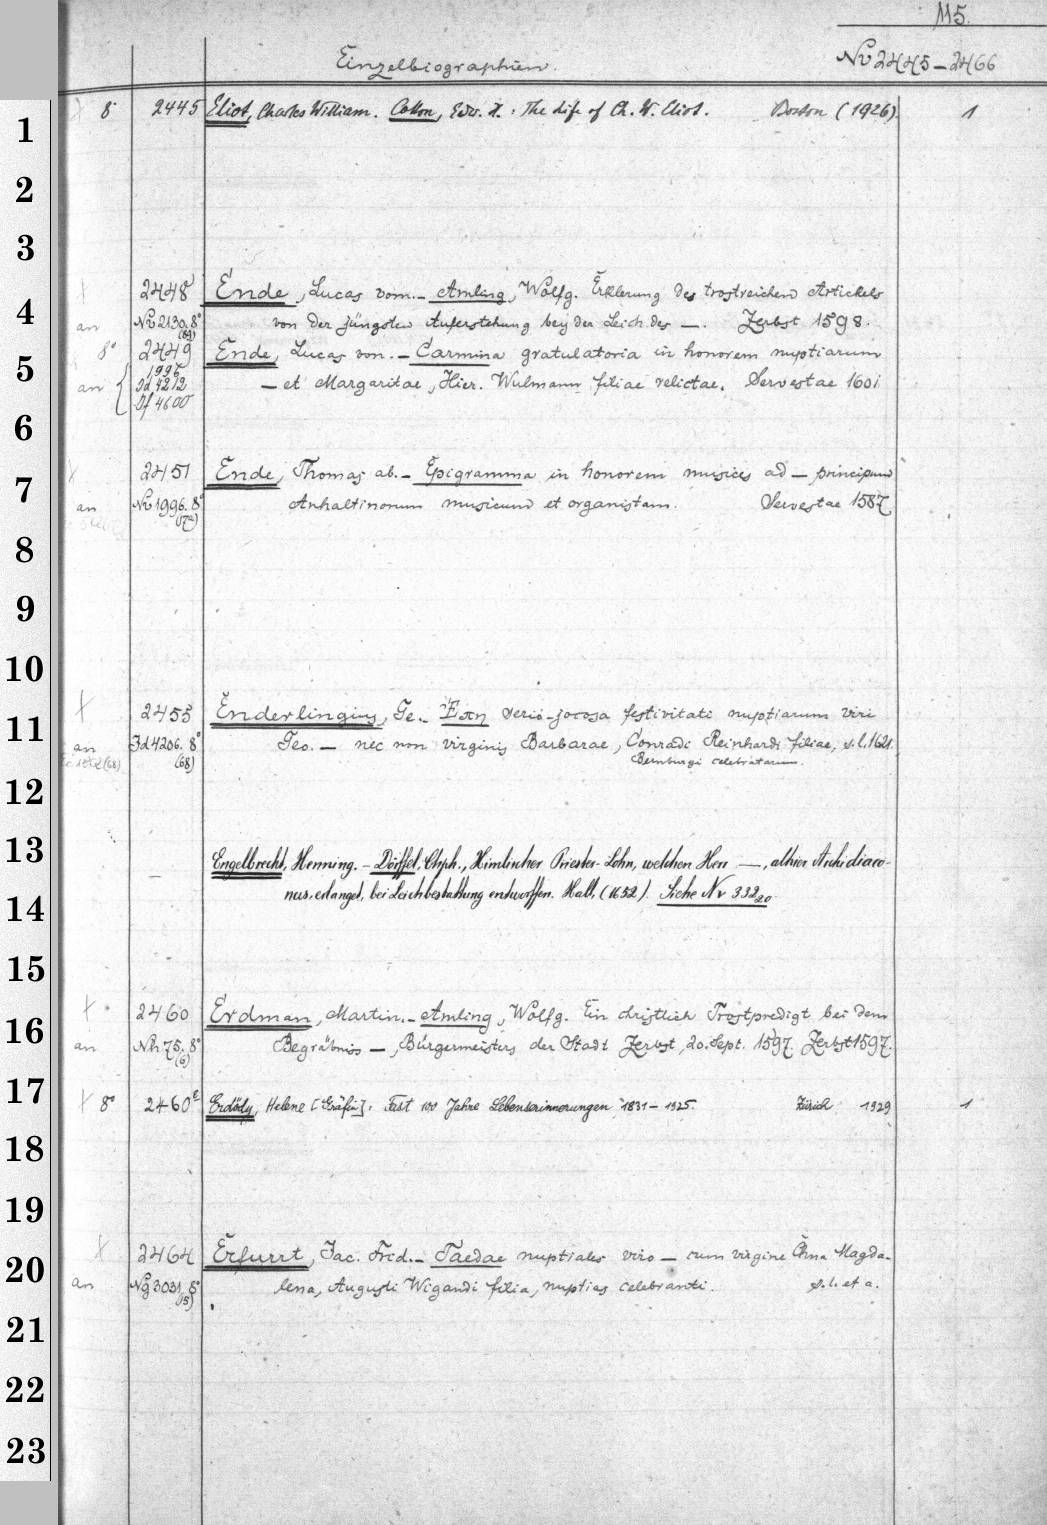 115.
Einzelbiographien. Nv 2445-2466
8° 2445 Eliot, Charles William. Cotton, Edw. H.: The life of Ch. W. Eliot. Boston (1926). 1
1
2
3
2448 Ende, Lucas vom. - Amling, Wolfg. Erklerung des trostreichen Artickels
4
an Nv 2130. 8° von der jüngsten Auferstehung bey der Leich des —. Zerbst 1598.
8° 2449 Ende, Lucas von. - Carmina gratulatoria in honorem nuptiarum
5
1996
an Id 4212 — et Margaritae, Hier. Wulmann filiae relictae. Servestae 1601
Af 4600
6
2451 Ende, Thomas ab. - Epigramma in honorem musices ad — principum
7
an Nv 1996. 8° Anhaltinorum musicum et organistam. Servestae 1587
(17a)
8
9
10
2455 Enderlingius, Ge. - Εὐχη serio-jocosa festivitati nuptiarum viri
11
an Id 4206. 8° Geo. — nec non virginis Barbarae, Conradi Reinhardi filiae, s. l. 1621.
(68) Bernburgi celebratarum.
12
13
Engelbrecht, Henning. - Dörffel, Chph., Himlischer Priester-Lohn, welchen Herr —, alhier Archidiaco-
nus, erlanget, bei Leichbestattung entworffen. Hall, (1652). Siehe Nv 332 20
14
15
2460 Erdman, Martin. - Amling, Wolfg. Ein christlich Trostpredigt bei dem
16
an Nh 75. 8° Begräbnis —, Bürgermeisters der Stadt Zerbst, 20. Sept. 1597. Zerbst 1597.
(6)
17
8° 2460e Erdödy, Helene [Gräfin]: Fast 100 Jahre Lebenserinnerungen 1831-1925. Zürich 1929 1
18
19
2464 Erfurrt, Jac. Frid. - Taedae nuptiales viro — cum virgine Anna Magda-
20
an Ng 3031 8° lena, Augusti Wigandi filia, nuptias celebranti. s. l. et a.
(15)
21
22
23